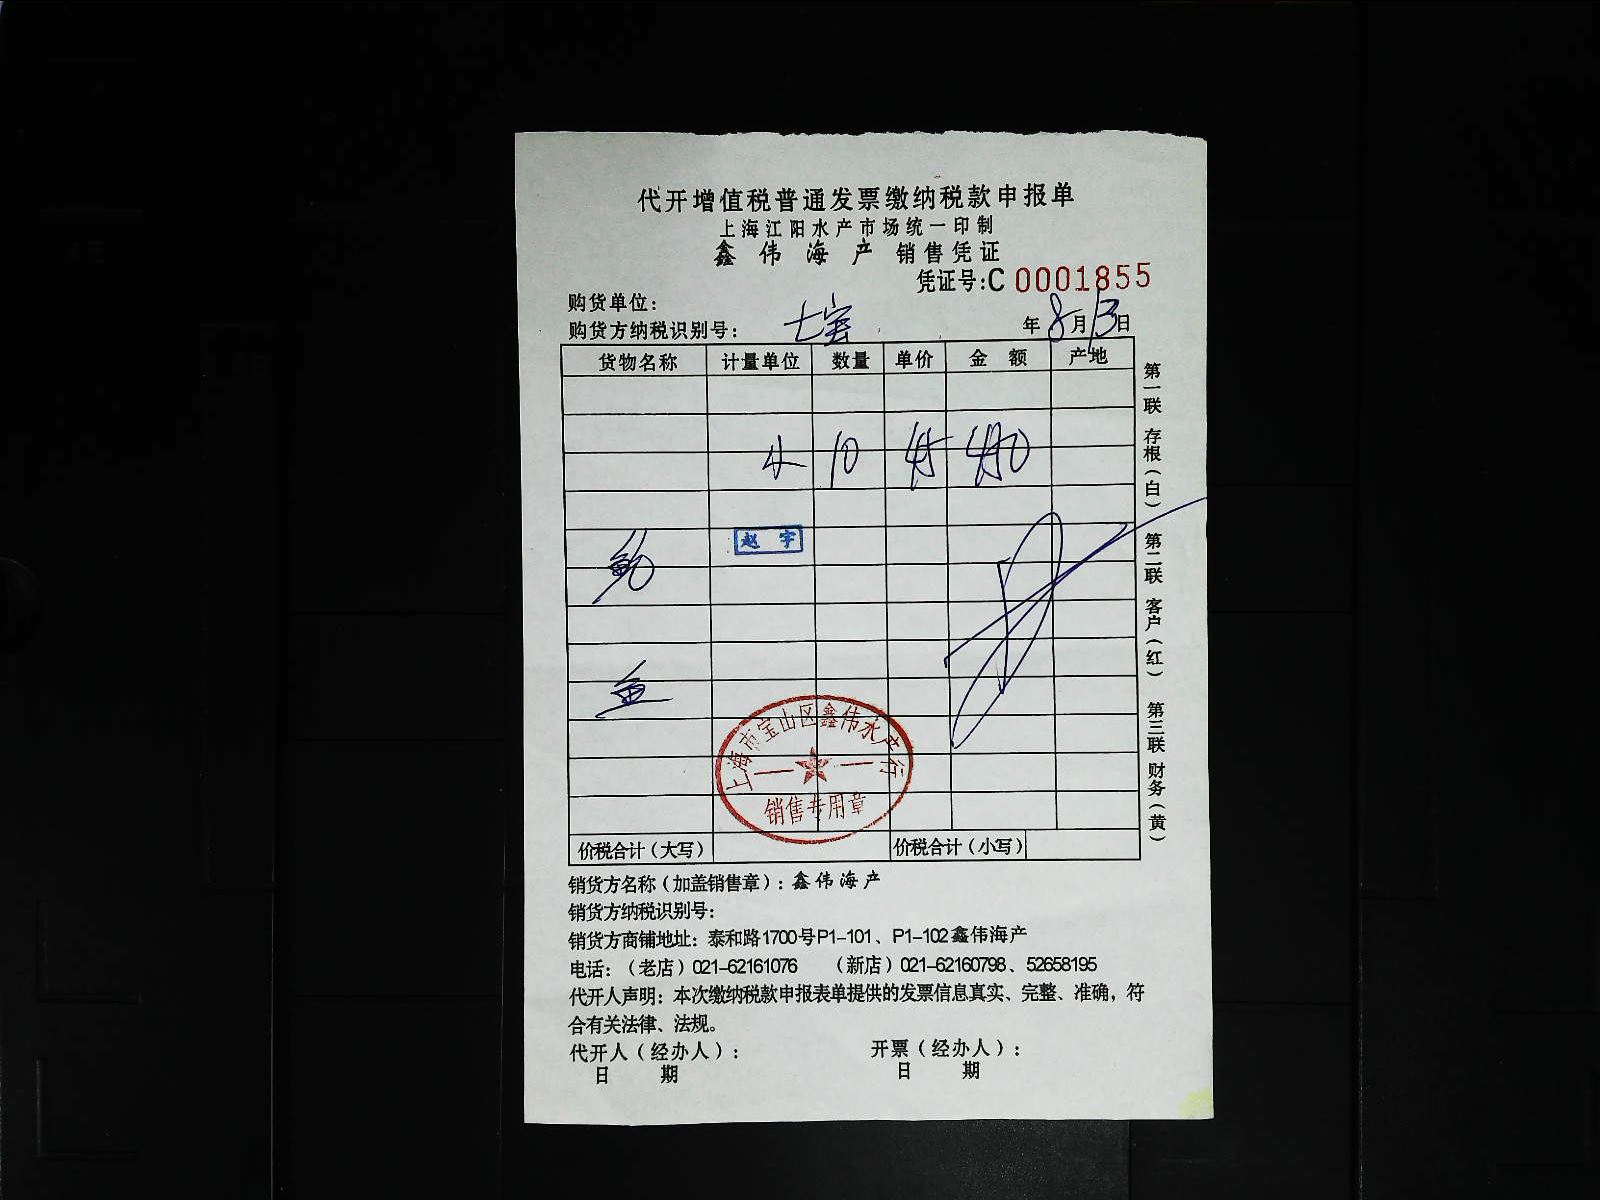 代开增值税普通发票缴纳税款申报单
上海江阳水产市场统一印制
鑫伟海产 销售凭证
凭证号:C 0001855
购货单位:
购货方纳税识别号: 七宝 年8月13日
货物名称 计量单位 数量 单价 金额 产地
10 45 450
赵宇
鲍
鱼
上海市宝山区鑫伟水产行
销售专用章
价税合计(大写) 价税合计(小写)
第一联 存根(白) 第二联 客户(红) 第三联 财务(黄)
销货方名称(加盖销售章):鑫伟海产
销货方纳税识别号:
销货方商铺地址:泰和路1700号P1-101、P1-102鑫伟海产
电话:(老店)021-62161076 (新店)021-62160798、52658195
代开人声明:本次缴纳税款申报表单提供的发票信息真实、完整、准确,符
合有关法律、法规。
代开人(经办人): 开票(经办人):
日 期 日 期